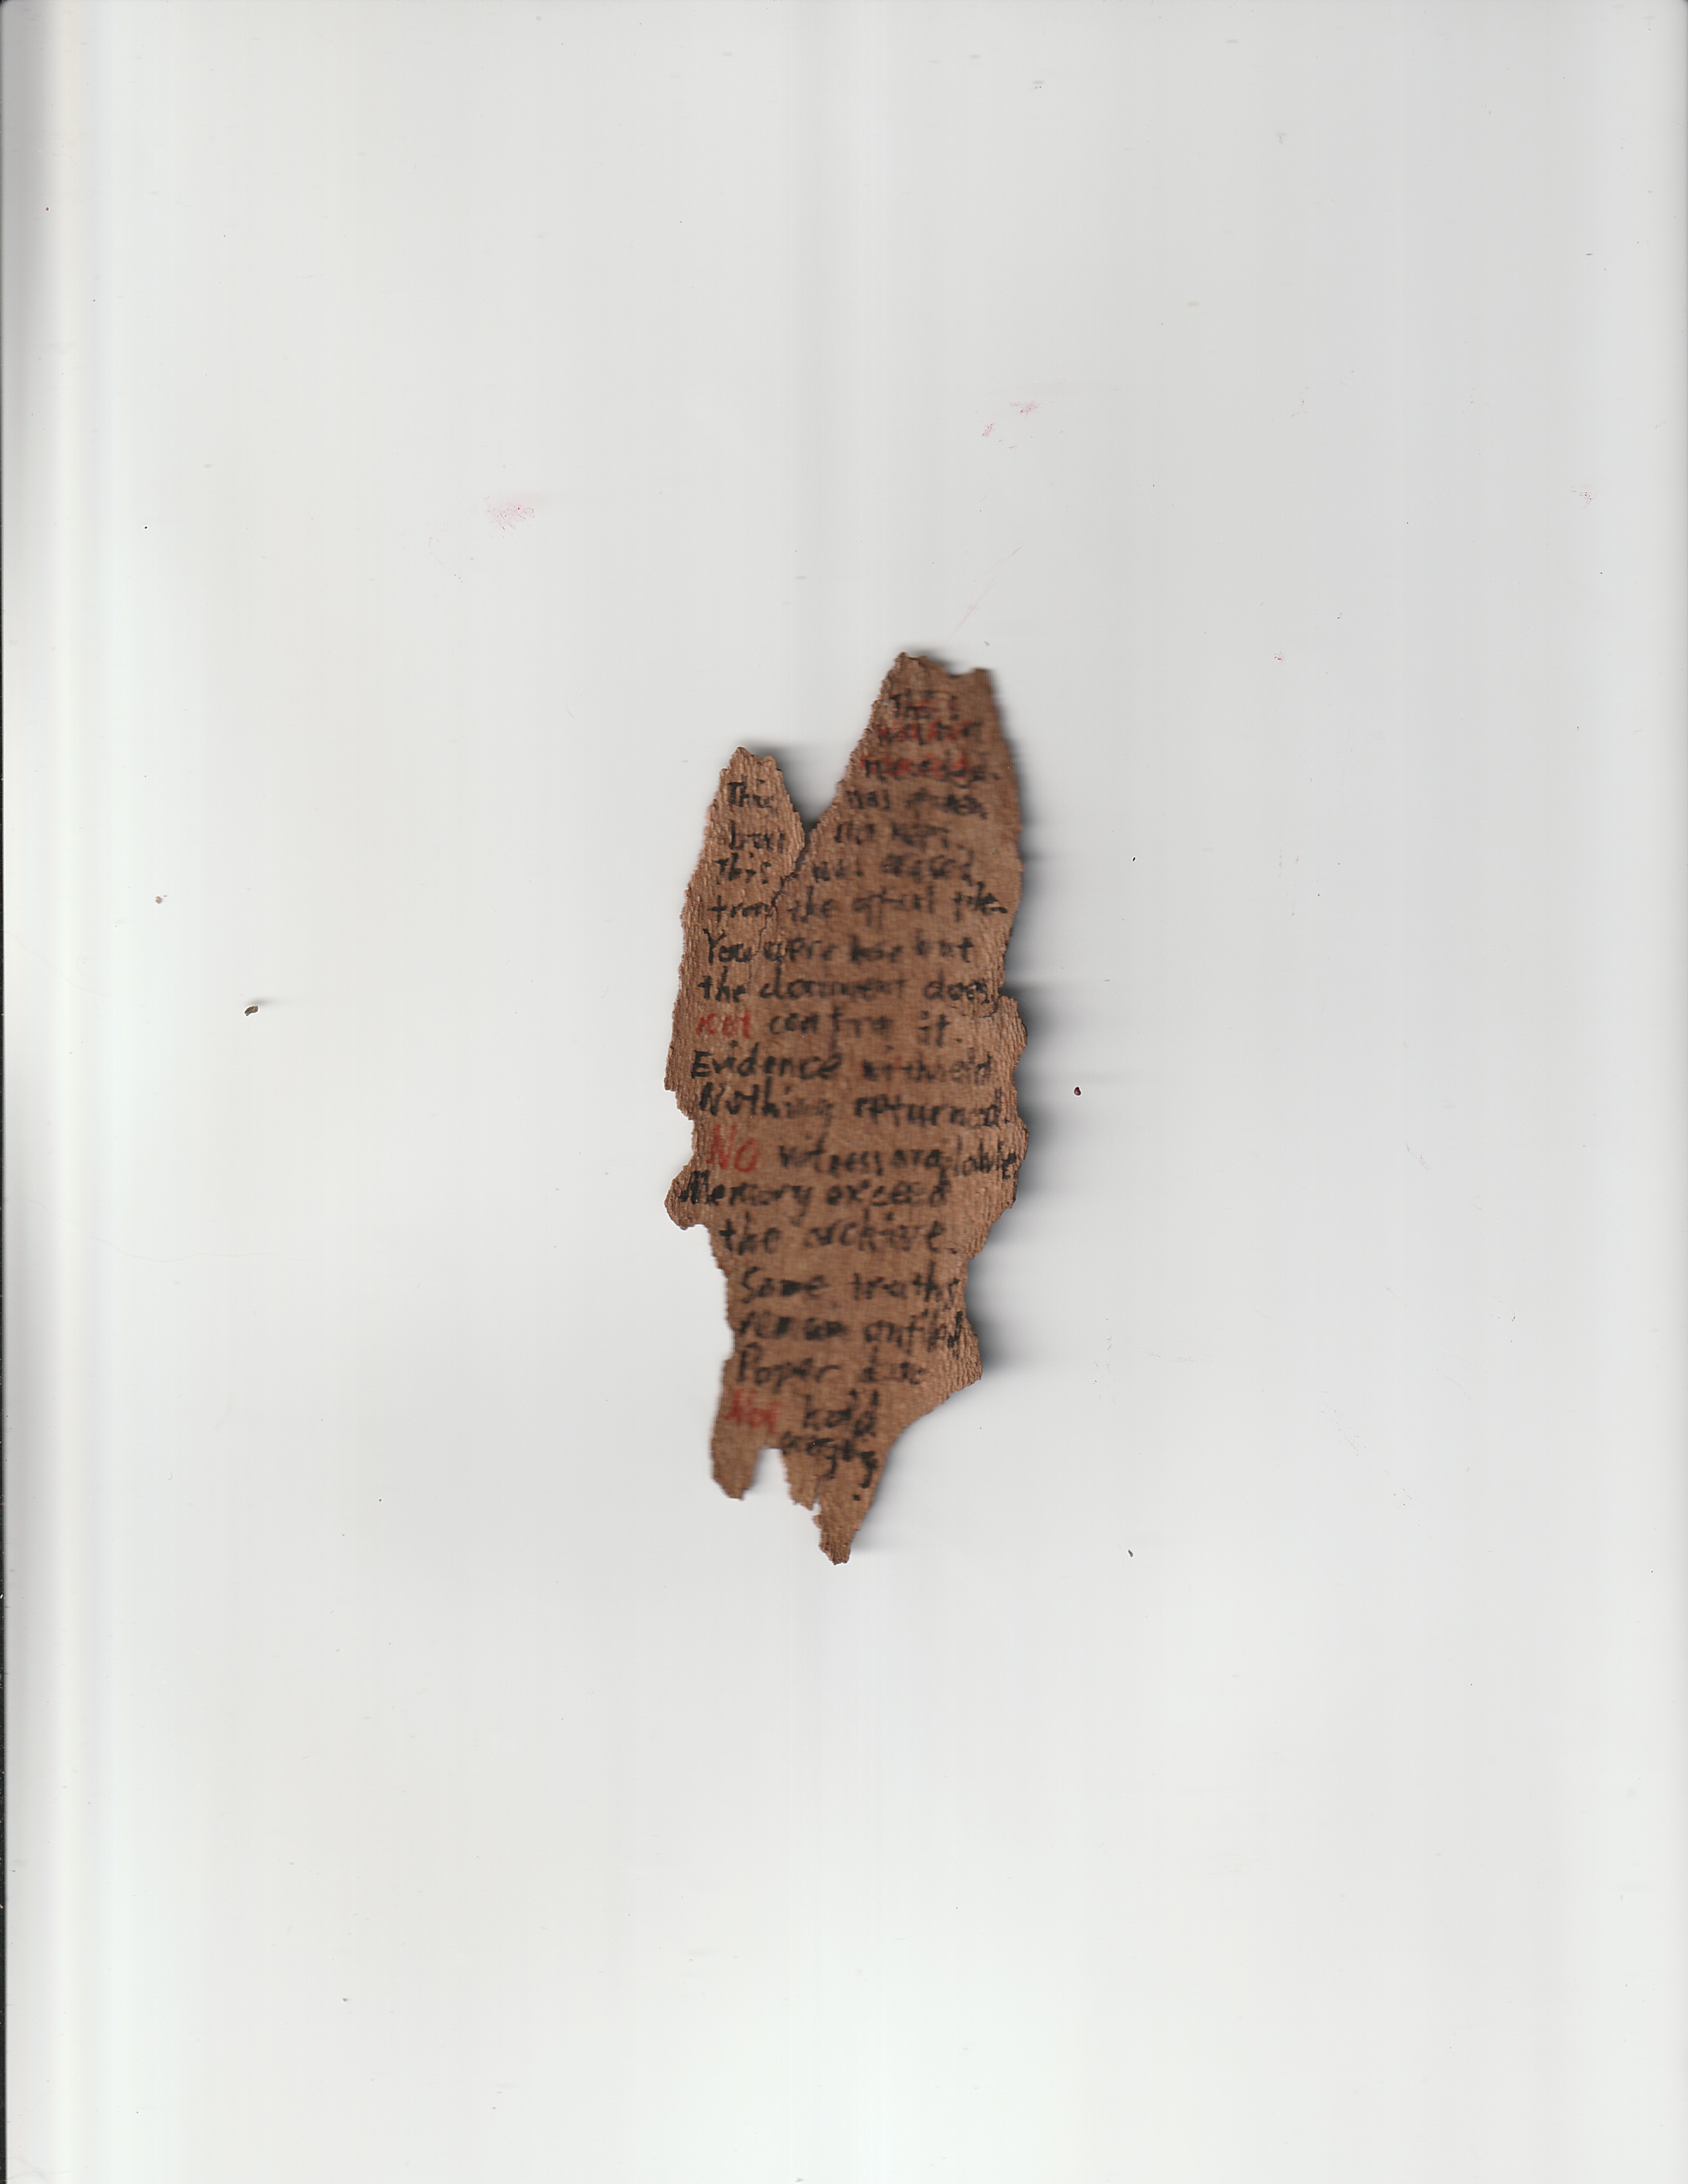 This
message.
This was
but no
This was erased
from the official file.
You were here but
the document does
not confirm it.
Evidence withheld
Nothing returned.
NO witness available
Memory exceed
the archive.
Some truths
remain unfiled
Paper does
Not hold